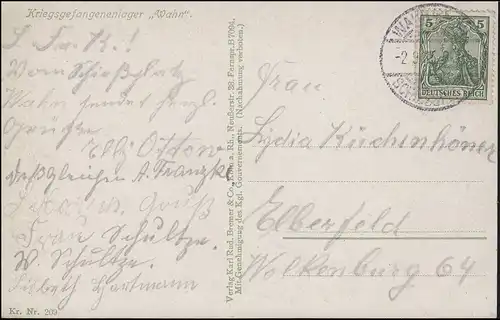 Kriegsgefangenenlager „Wahn“.
L. Fr. K.!
Vom Schießplatz
Wahn sendet herzl.
Grüße
Elly Otten
desgleichen A. Franzke
Gruß
Frau Schultze
W. Schultze.
Lisbeth Hartmann
Kr. Nr. 209
Verlag Karl Rud. Bremer & Co., Köln a. Rh., Neußerstr. 28, Fernspr. B 7094.
Mit Genehmigung des Kgl. Gouvernements. (Nachahmung verboten.)
WAHN
-2
SCHIESS
5 5
DEUTSCHES REICH
Frau
Lydia Küchenhöner
Elberfeld
Wolkenburg 64